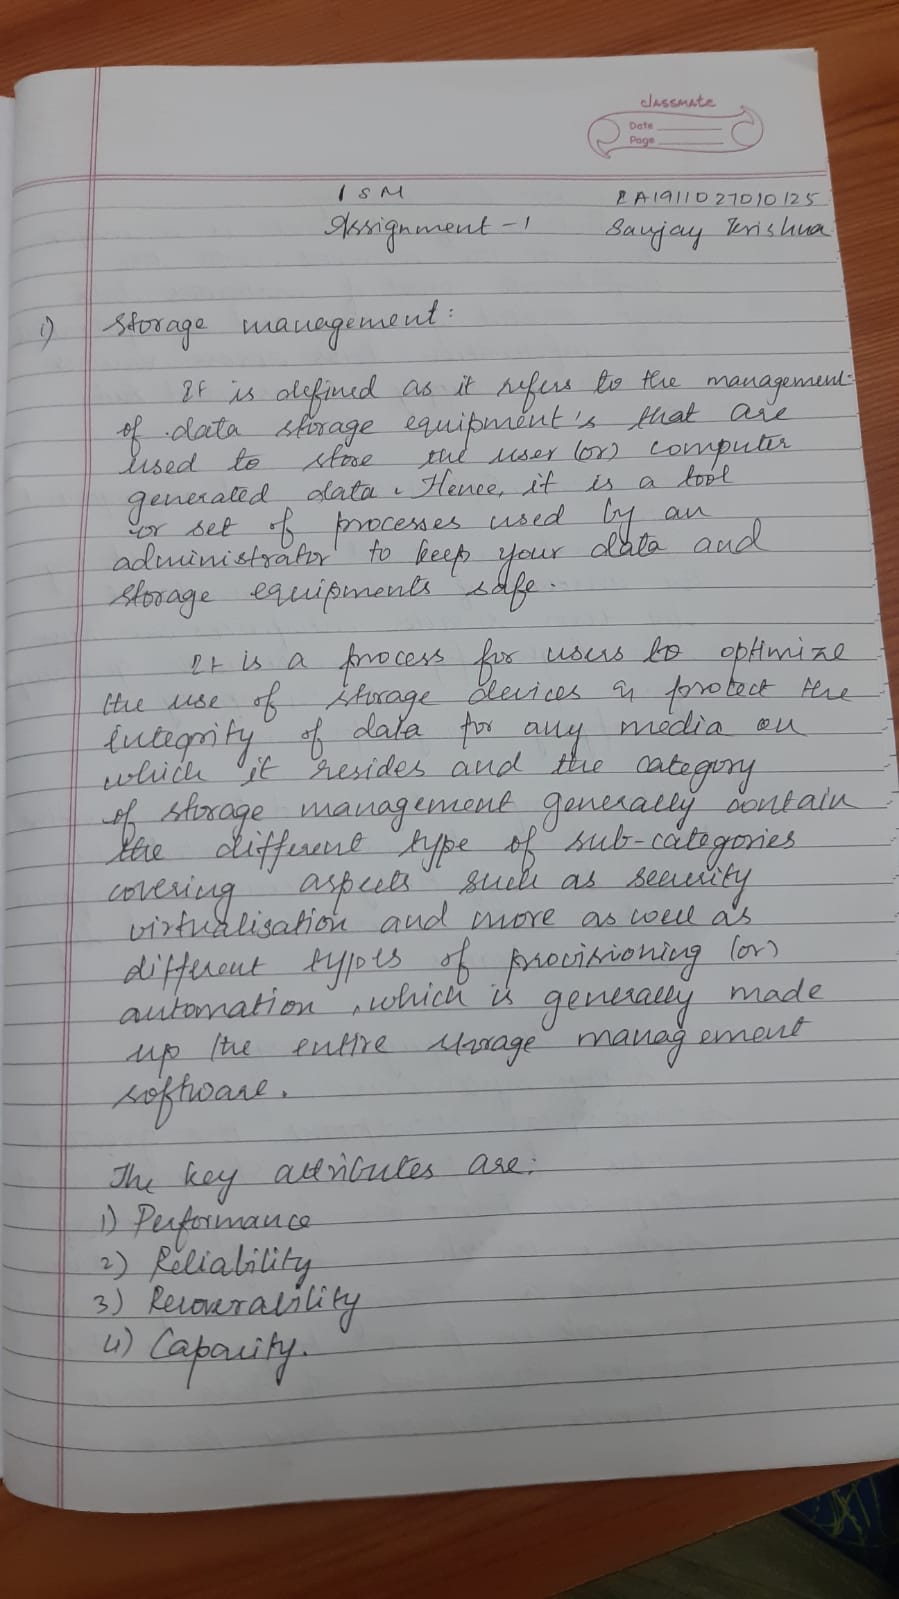 classmate
Date
Page
ISM
RA1911027010125
Assignment - 1
Sanjay Krishna
1) Storage management:
It is defined as it refers to the management
of data storage equipment's that are
used to store the user (or) computer
generated data. Hence, it is a tool
or set of processes used by an
administrator to keep your data and
storage equipments safe.
It is a process for users to optimize
the use of storage devices & protect the
integrity of data for any media on
which it resides and the category
of storage management generally contain
the different type of sub-categories
covering aspects such as security
virtualisation and more as well as
different types of provisioning (or)
automation, which is generally made
up the entire storage management
software.
The key attributes are:
1) Performance
2) Reliability
3) Recoverability
4) Capacity.